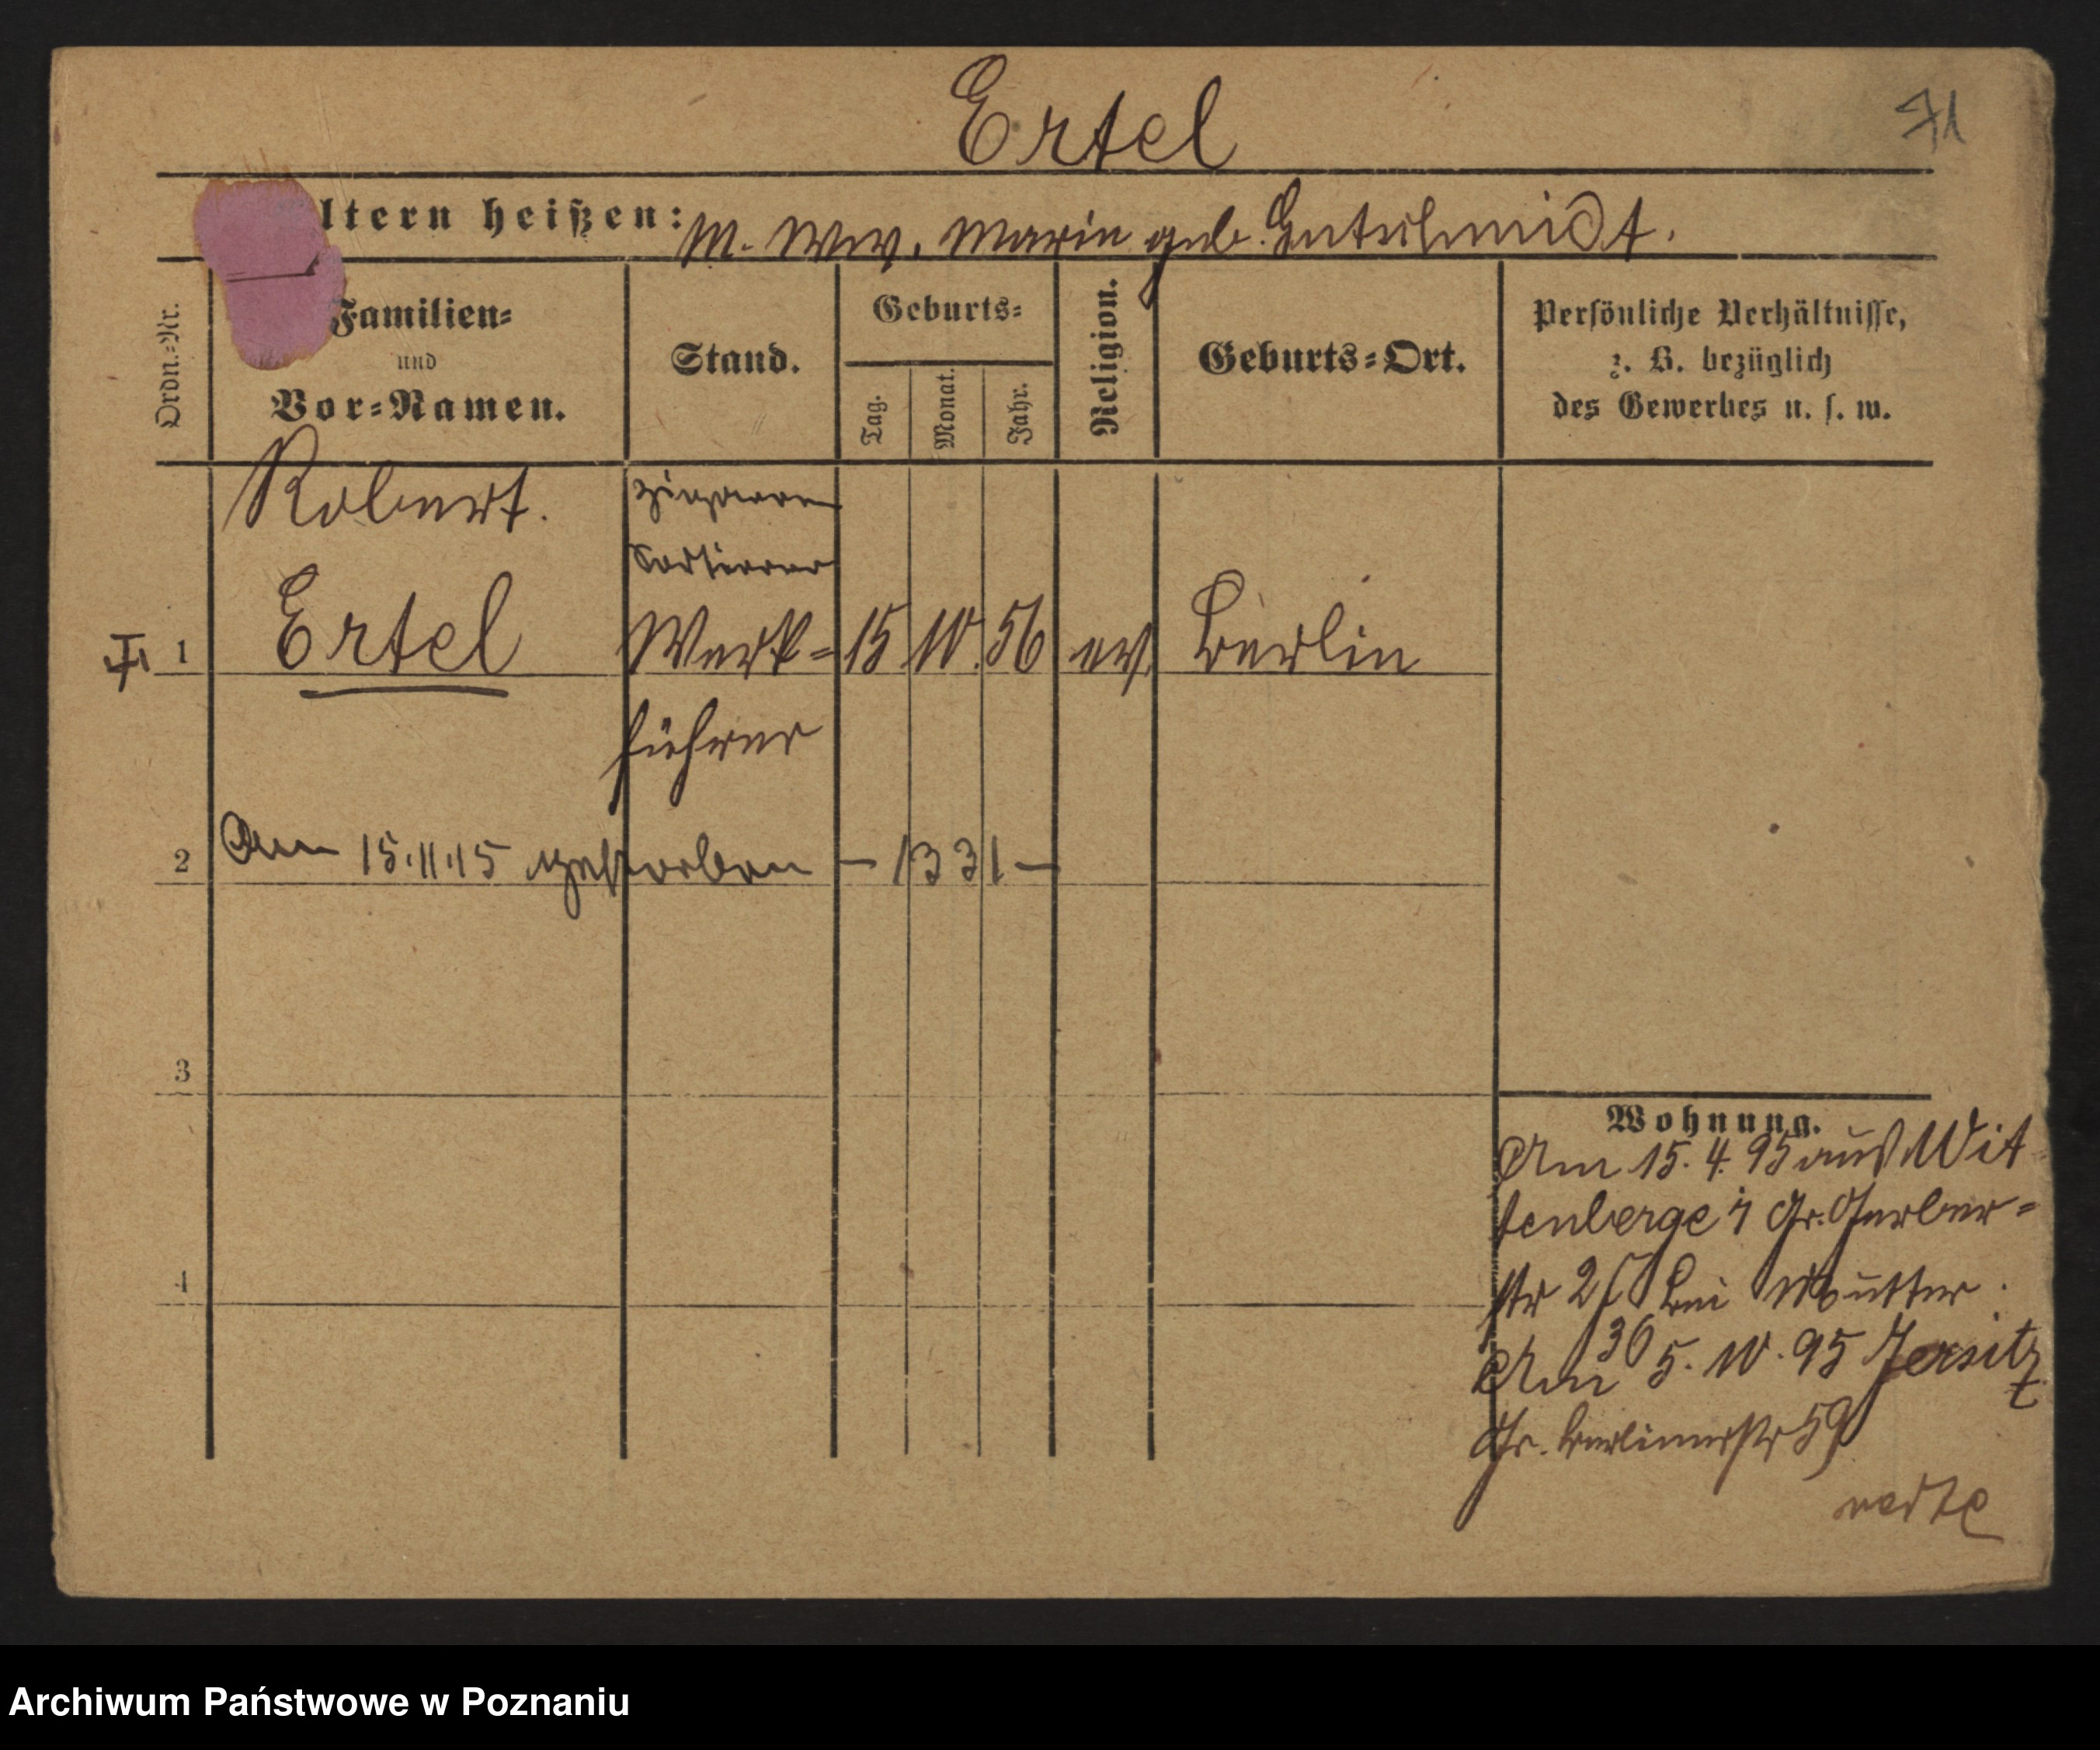 Ertel
71
ltern heißen: M. Ww. Marie geb. Gutschmidt.
Ordn.-Nr.
Familien-
und
Vor-Namen.
Stand.
Geburts-
Tag.
Monat.
Jahr.
Religion.
Geburts-Ort.
Persönliche Verhältnisse,
z. B. bezüglich
des Gewerbes u. s. w.
Robert.
Zigarren
Sortierer
1 Ertel Werk- 15 10. 56 ev. Berlin
führer
2 Am 15.11.15 gestorben – 1331 –
3
4
Wohnung.
Am 15. 4. 95 aus Wit
tenberge Gr. Gerber-
str bei Mutter.
Am 5. 10. 95 Jersitz
Gr. Berlinerstr 59